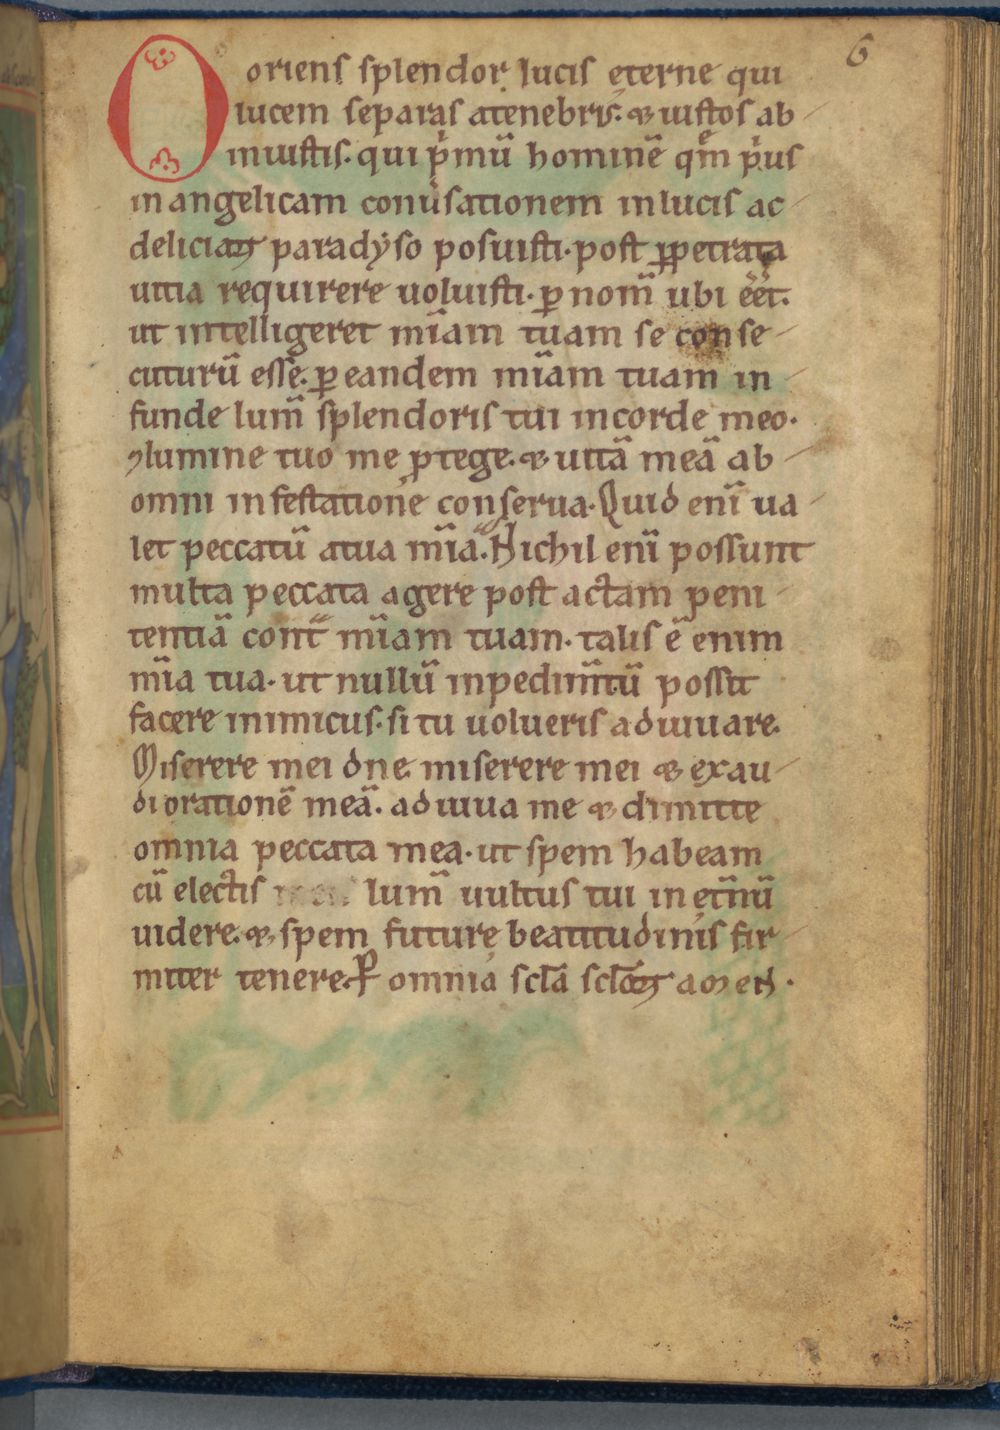 6
O oriens splendor lucis ęterne qui
lucem separas atenebris. & iustos ab
iniustis. qui p̍mū hominē qm̄ p̍us
in angelicam conu̍sationem in lucis ac
deliciaꝝ paradẏso posuisti. post ꝑpetrata
uitia requirere uoluisti. ꝑ nom̄ ubi eēt.
ut intelligeret mīam tuam se conse
cuturū esse. ꝑ eandem mīam tuam in
funde lum̄ splendoris tui in corde meo.
ylumine tuo me ꝓtege. & uitā meā ab
omni infestatione conserua. Quid enī ua
let peccatū atua mīa. Nichil enī possunt
multa peccata agere post actam peni
tentiā cont̄ mīam tuam. talis ē enim
mīa tua. ut nullū inpedim̄tū possit
facere inimicus. si tu uolueris adiuuare.
Miserere mei dne miserere mei & exau
di orationē meā. adiuua me & dimitte
omnia peccata mea. ut spem habeam
cū electis lum̄ uultus tui in et̄nū
uidere. & spem futurę beatitudinis fir
miter tenere. P̄ omnia scl̄a scl̄oꝝ amen.